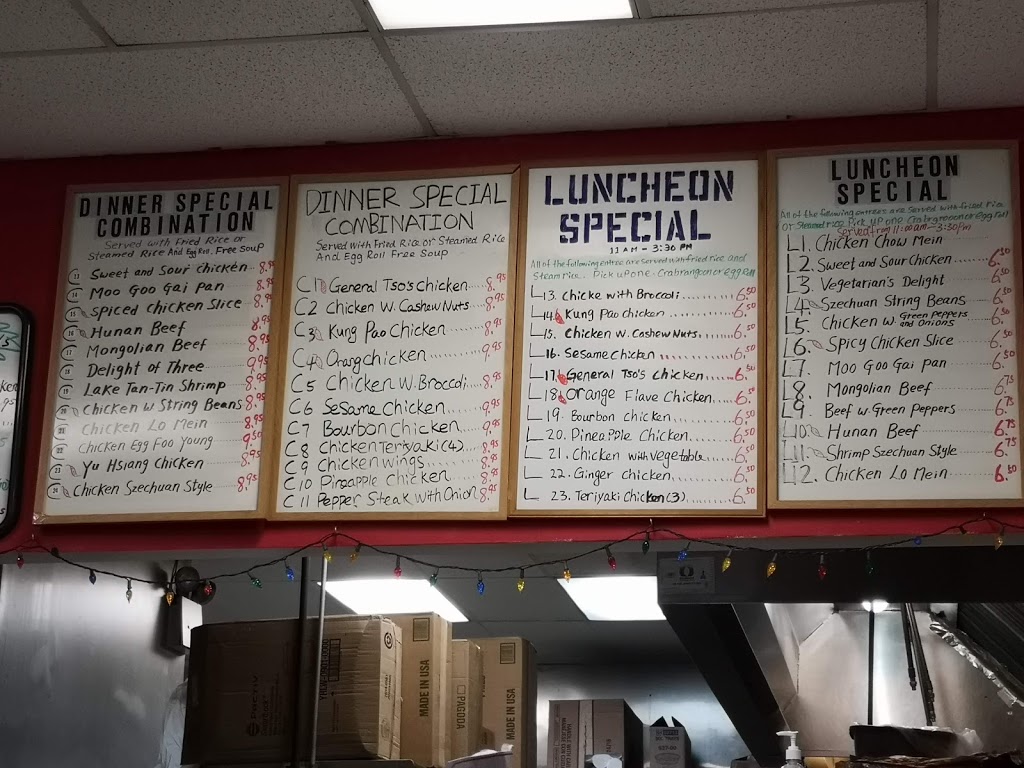 DINNER SPECIAL
COMBINATION
Served with Fried Rice or
Steamed Rice And Egg Roll Free Soup
Sweet and Sour chicken 8.95
Moo Goo Gai Pan 8.95
Spiced chicken Slice 8.95
Hunan Beef 8.95
Mongolian Beef 8.95
Delight of Three 9.95
Lake Tan-Tin Shrimp 8.95
Chicken w String Beans 8.95
Chicken Lo Mein 8.95
Chicken Egg Foo Young 9.50
Yu Hsiang Chicken 8.95
Chicken Szechuan Style 8.95
DINNER SPECIAL
COMBINATION
Served with Fried Rice or Steamed Rice
And Egg Roll Free Soup
C1 General Tso's Chicken 8.95
C2 Chicken W. Cashew Nuts 8.95
C3 Kung Pao Chicken 8.95
C4 Orangchicken 9.95
C5 Chicken W. Broccoli 8.95
C6 Sesame Chicken 9.95
C7 Bourbon Chicken 9.95
C8 Chicken Teriyaki (4) 8.95
C9 Chicken wings 8.95
C10 Pineapple Chicken 8.95
C11 Pepper Steak with Onion 8.95
LUNCHEON
SPECIAL
11 AM - 3:30 PM
All of the following entree are Served with fried rice and
Steam rice. Pick up one. Crabrangoon or egg Roll
L13. Chicke with Broccoli 6.50
L14. Kung Pao chicken 6.50
L15. Chicken W. Cashew Nuts. 6.50
L16. Sesame chicken 6.50
L17. General Tso's Chicken 6.50
L18. orange Flave Chicken 6.50
L19. Bourbon Chicken 6.50
L20. Pineapple Chicken 6.50
L21. Chicken with vegetable 6.50
L22. Ginger chicken 6.50
L23. Teriyaki Chicken (3) 6.50
LUNCHEON
SPECIAL
All of the following entrees are Served with fried Rice
Or Steamed rice. Pick up one Crabrangoon or egg Roll
Served from 11:00am - 3:30pm
L1. Chicken Chow Mein
L2. Sweet and Sour Chicken 6.50
L3. Vegetarian's Delight 6.50
L4. Szechuan String Beans 6.50
L5. Chicken W Green Peppers and Onions 6.50
L6. Spicy Chicken Slice 6.50
L7. Moo Goo Gai Pan 6.50
L8. Mongolian Beef 6.75
L9. Beef w. Green Peppers 6.75
L10. Hunan Beef 6.75
L11. Shrimp Szechuan Style 6.75
L12. Chicken Lo Mein 6.50
MADE IN USA
PAGODA
MADE IN USA